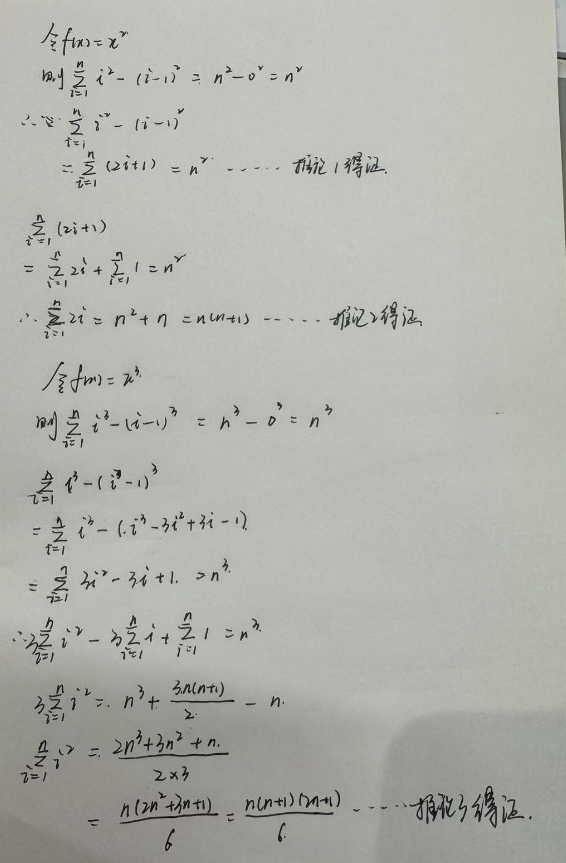 令f(x)=x²
则 ∑_{i=1}^{n} i²-(i-1)² = n²-0² = n²
∴ ∑_{i=1}^{n} i²-(i-1)²
= ∑_{i=1}^{n} (2i+1) = n² ······ 推论1得证.
∑_{i=1}^{n} (2i+1)
= ∑_{i=1}^{n} 2i + ∑_{i=1}^{n} 1 = n²
∴ ∑_{i=1}^{n} 2i = n²+n = n(n+1) ······ 推论2得证
令f(x)=x³
则 ∑_{i=1}^{n} i³-(i-1)³ = n³-0³ = n³
∑_{i=1}^{n} i³-(i-1)³
= ∑_{i=1}^{n} i³-(i³-3i²+3i-1)
= ∑_{i=1}^{n} 3i²-3i+1 = n³
∴ 3∑_{i=1}^{n} i² - 3∑_{i=1}^{n} i + ∑_{i=1}^{n} 1 = n³
3∑_{i=1}^{n} i² = n³ + 3n(n+1)/2 - n
∑_{i=1}^{n} i² = (2n³+3n²+n)/(2×3)
= n(2n²+3n+1)/6 = n(n+1)(2n+1)/6 ······ 推论3得证.